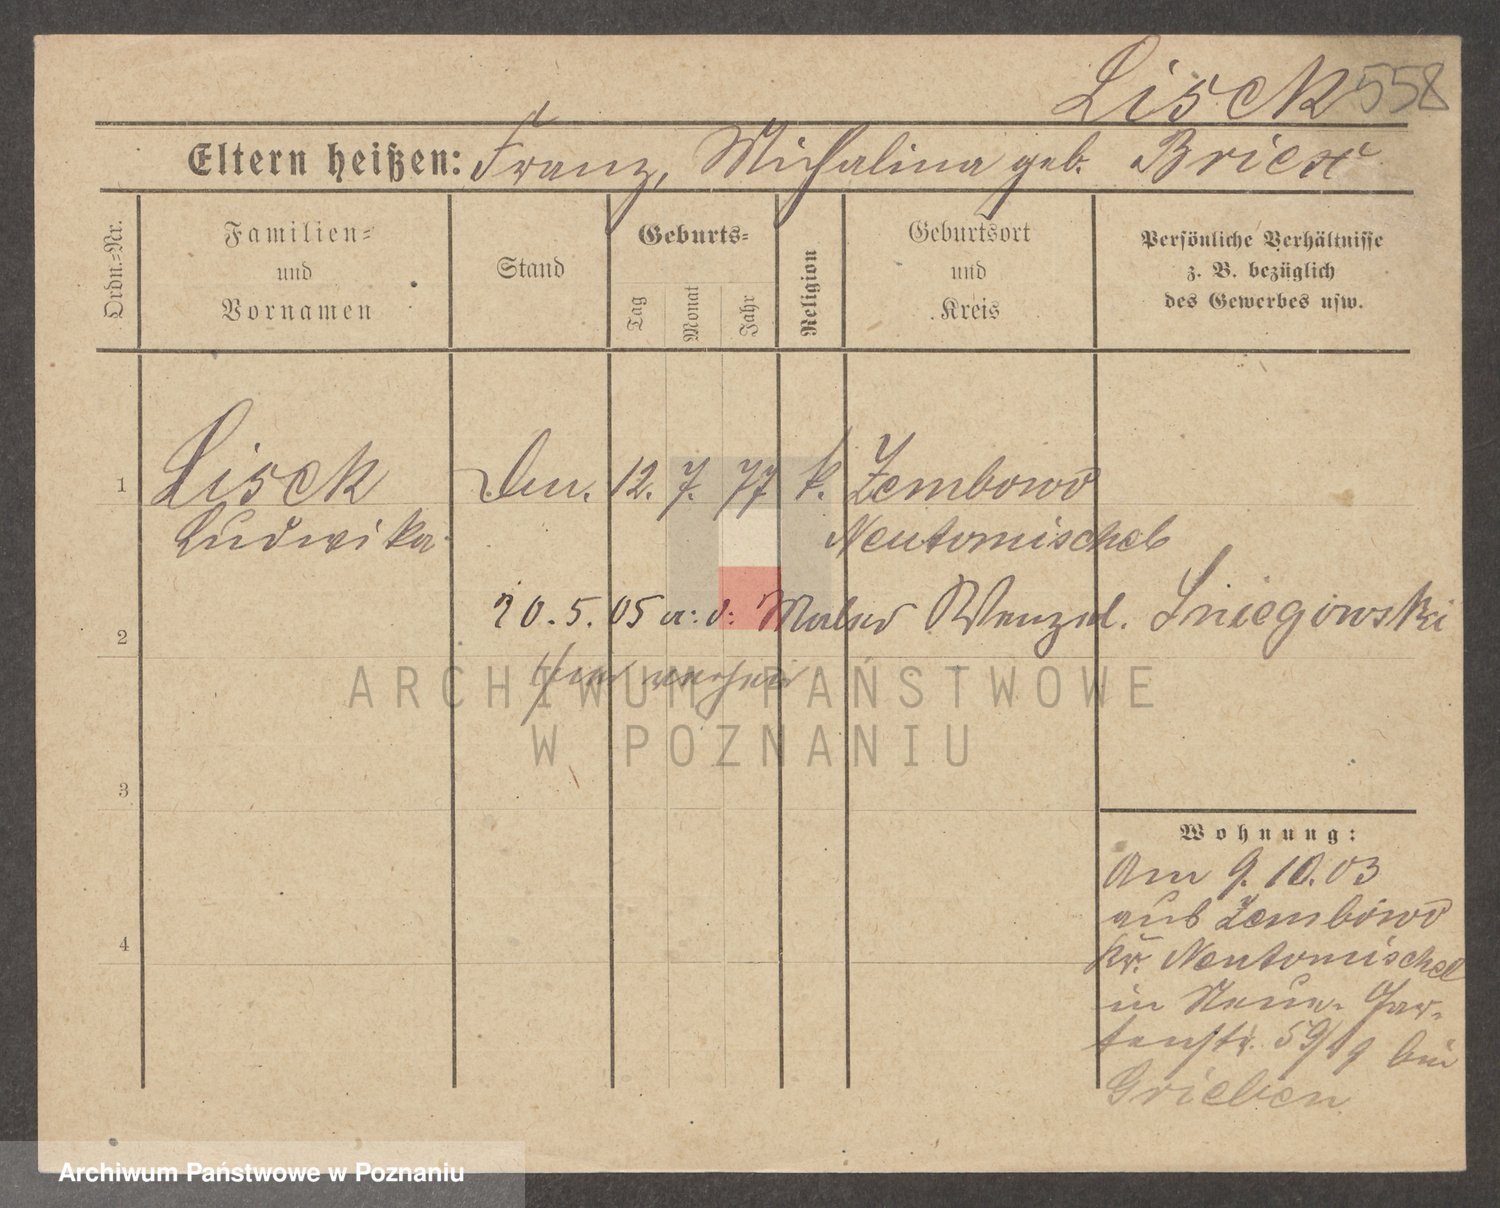 Lisek 558
Eltern heißen: Franz, Michalina geb. Briex
Ordn.-Nr.
Familien-
und
Vornamen
Stand
Geburts-
Tag
Monat
Jahr
Religion
Geburtsort
und
Kreis
Persönliche Verhältnisse
z. B. bezüglich
des Gewerbes usw.
1 Lisek 12. 7. 77 k. Zembowo
Ludwika Neutomischel
20. 5. 05 a: d: Maler Wenzel. Sniegowski
2
hier verh
ARCHIWUM PAŃSTWOWE
W POZNANIU
3
4
Wohnung:
Am 9. 10. 03
aus Zembowo
Kr. Neutomischel
in Neue. Gar-
tenstr. 59/ bei
Grieben
Archiwum Państwowe w Poznaniu